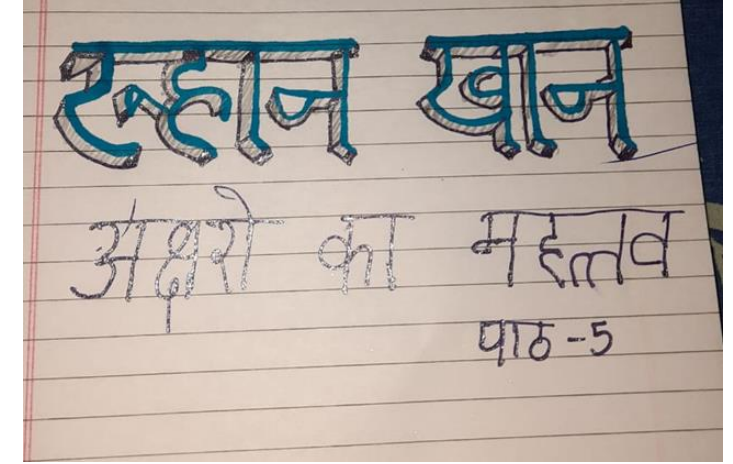 रूहान खान
अक्षरो का महत्त्व
पाठ-5